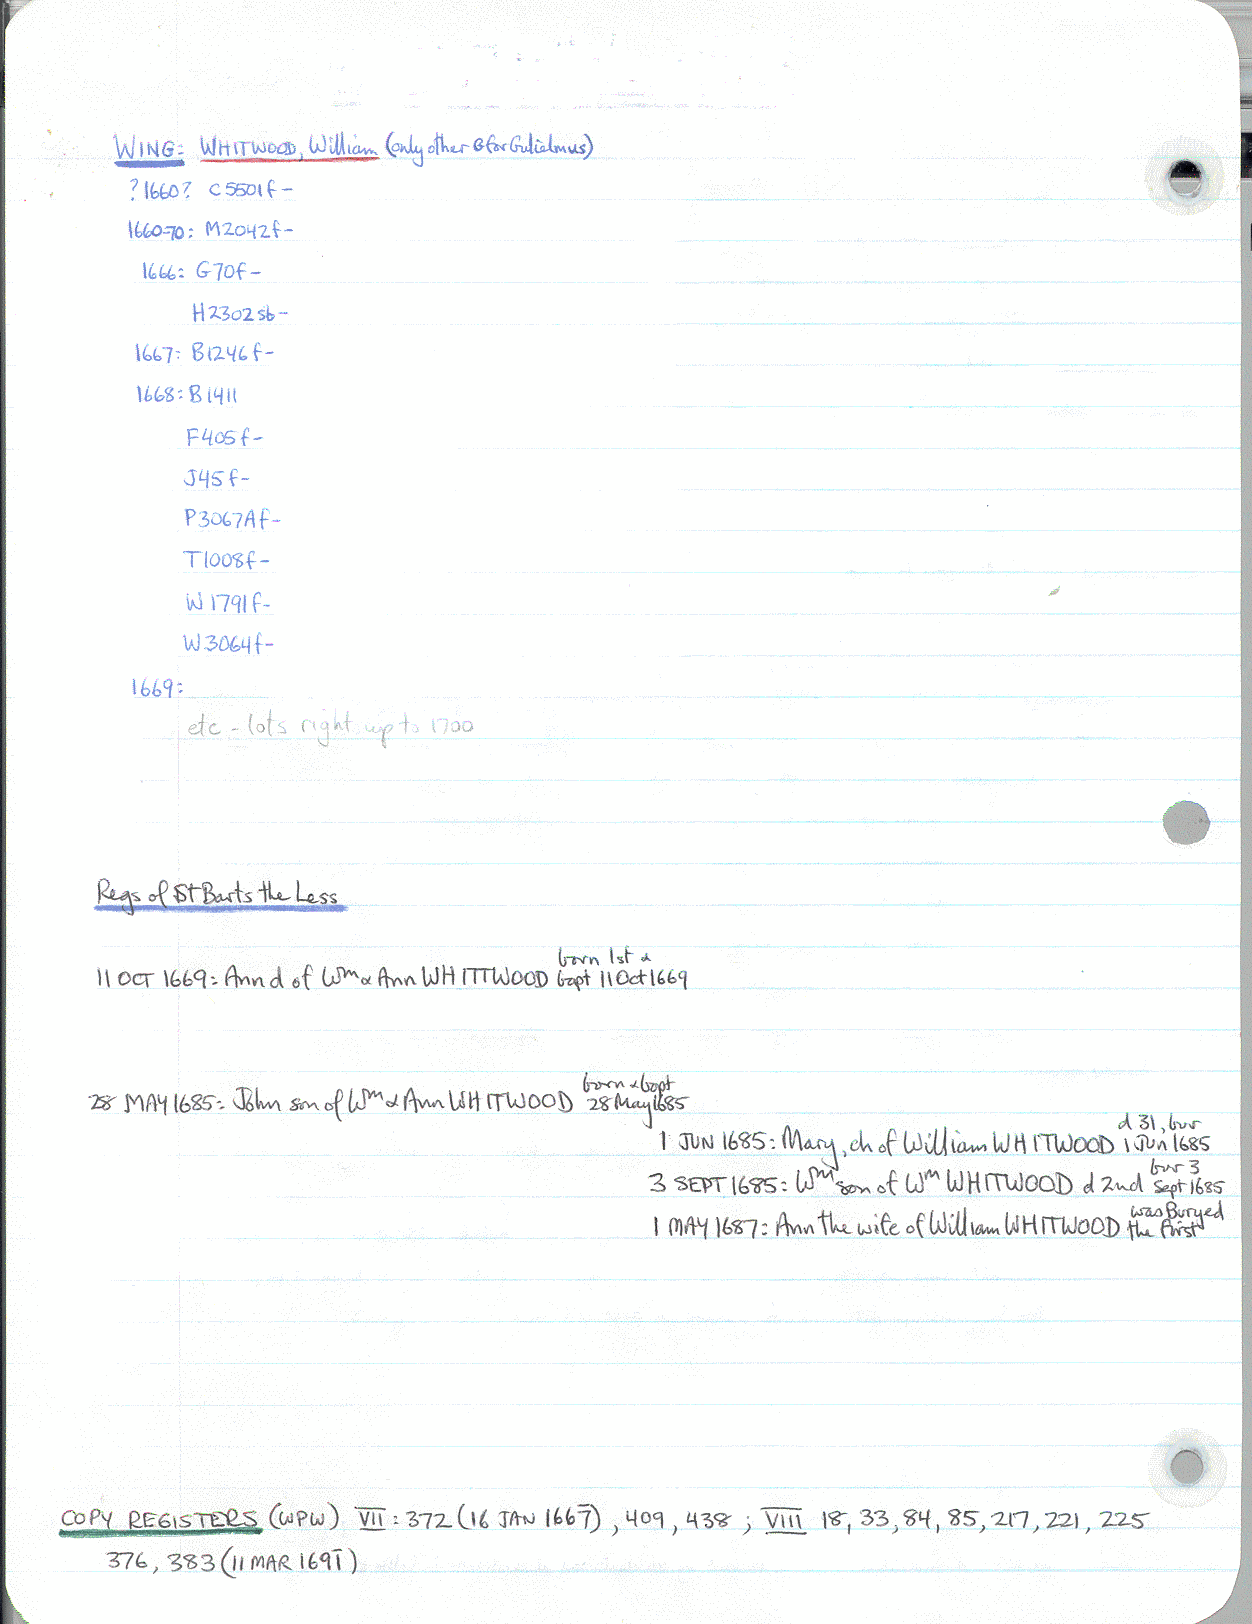 WING: WHITWOOD, William (only other G for Gulielmus)
?1660? C5501f-
1660-70: M2042f-
1666: G70f-
H2302sb-
1667: B1246f-
1668: B1411
F405f-
J45f-
P3067Af-
T1008f-
W1791f-
W3064f-
1669:
etc - lots right up to 1700
Regs of St Barts the Less
born 1st &
11 OCT 1669: Ann d of Wm & Ann WHITTWOOD bapt 11 Oct 1669
born & bapt
28 MAY 1685: John son of Wm & Ann WHITWOOD 28 May 1685
d 31, bur
1 JUN 1685: Mary, ch of William WHITWOOD 1 Jun 1685
bur 3
3 SEPT 1685: Wm son of Wm WHITWOOD d 2nd Sept 1685
was Buryed
1 MAY 1687: Ann the wife of William WHITWOOD the first
COPY REGISTERS (WPW) VII: 372 (16 JAN 1667), 409, 438; VIII 18, 33, 84, 85, 217, 221, 225
376, 383 (11 MAR 1691)